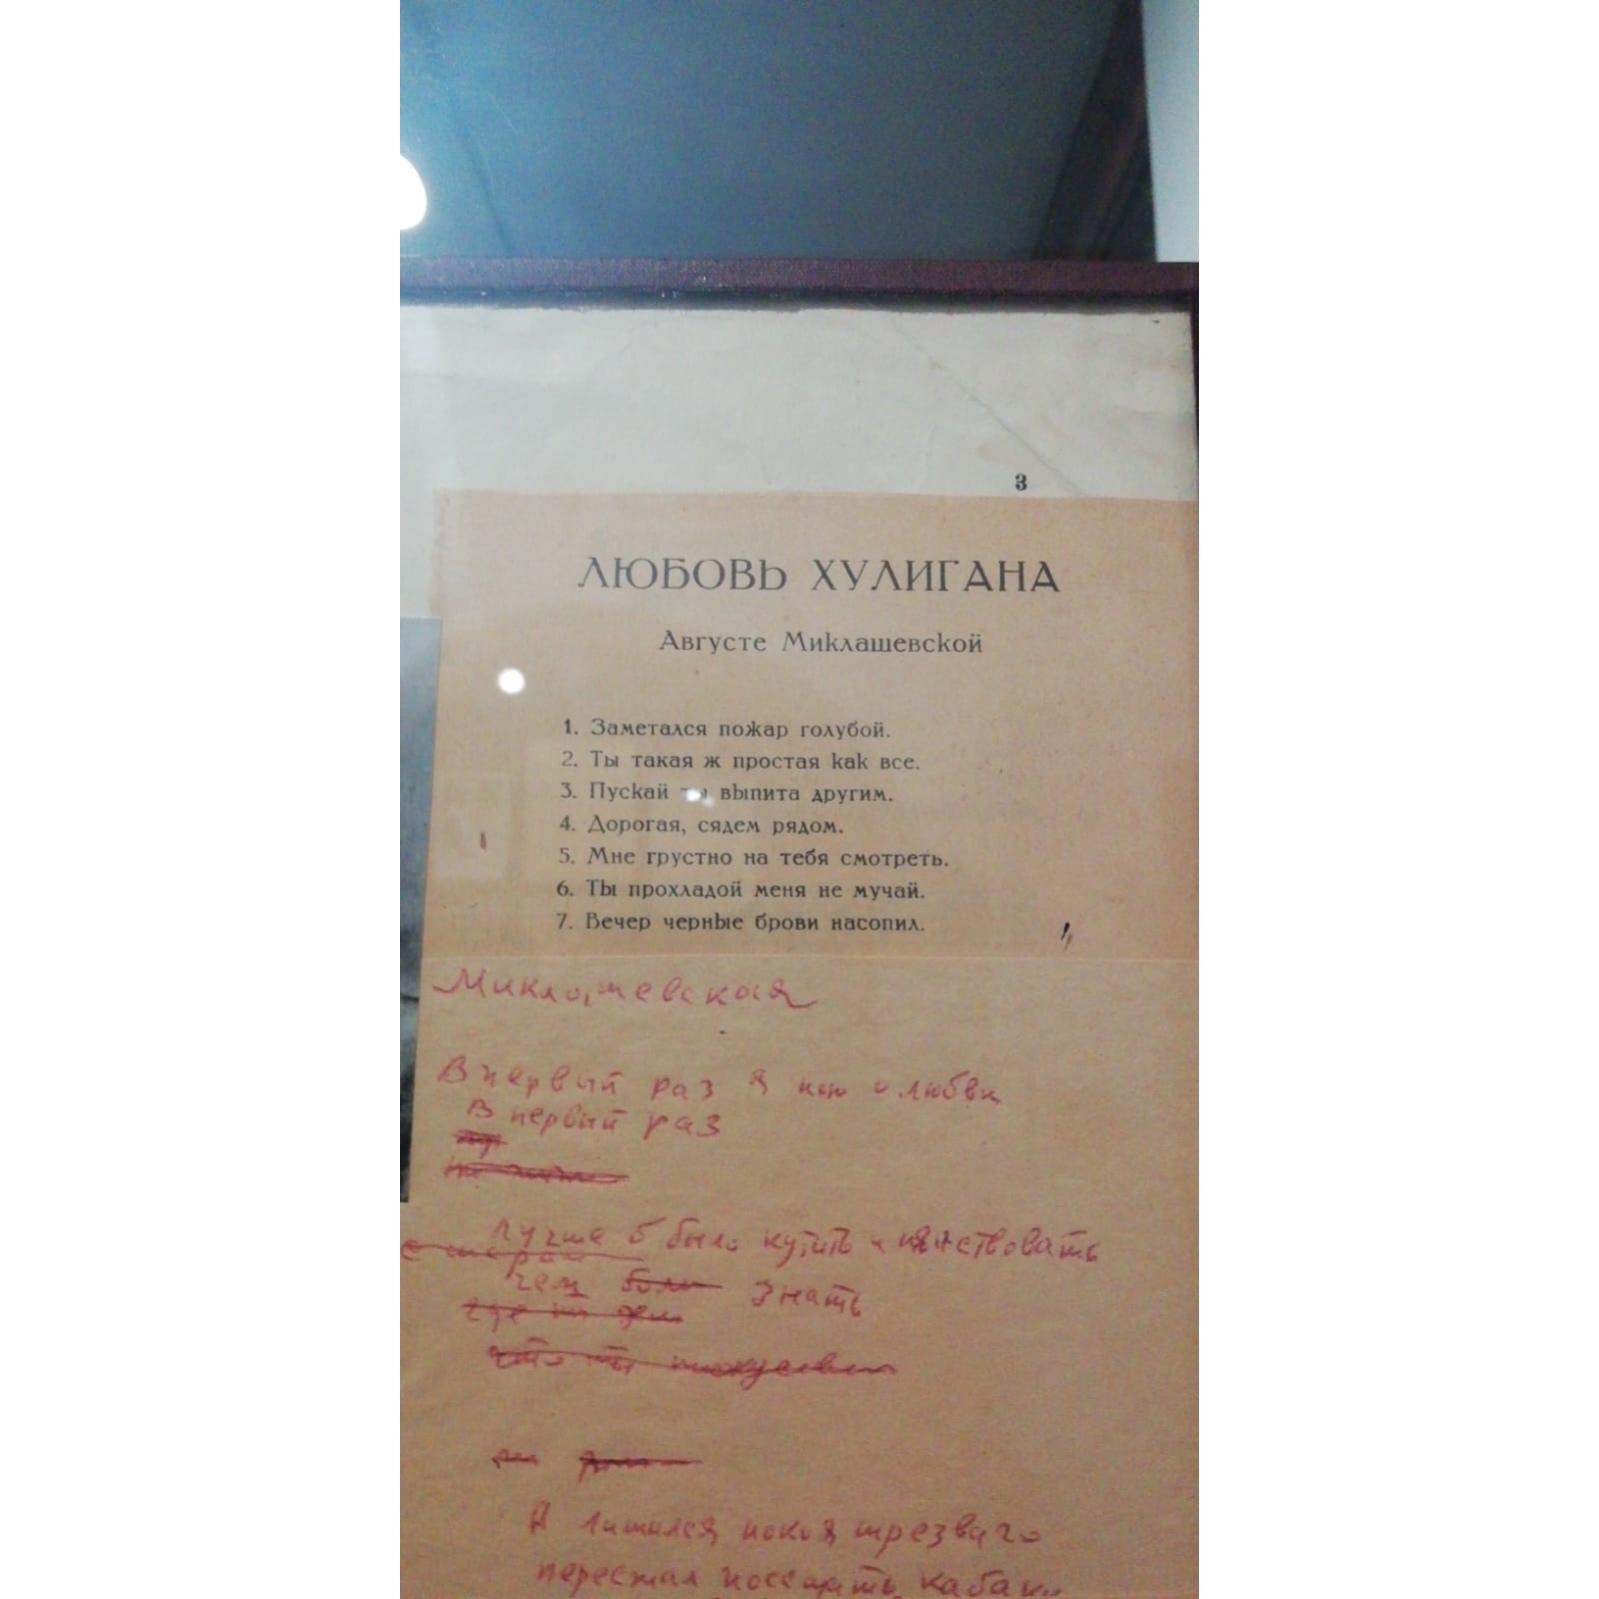 3
ЛЮБОВЬ ХУЛИГАНА
Августе Миклашевской
1. Заметался пожар голубой.
2. Ты такая ж простая как все.
3. Пускай ты выпита другим.
4. Дорогая, сядем рядом.
5. Мне грустно на тебя смотреть.
6. Ты прохладой меня не мучай.
7. Вечер черные брови насопил.
Миклашевская
В первый раз я пою о любви
В первый раз
лучше б было кутить и
чем знать
Я лишился покоя трезваго
перестал посещать кабаки